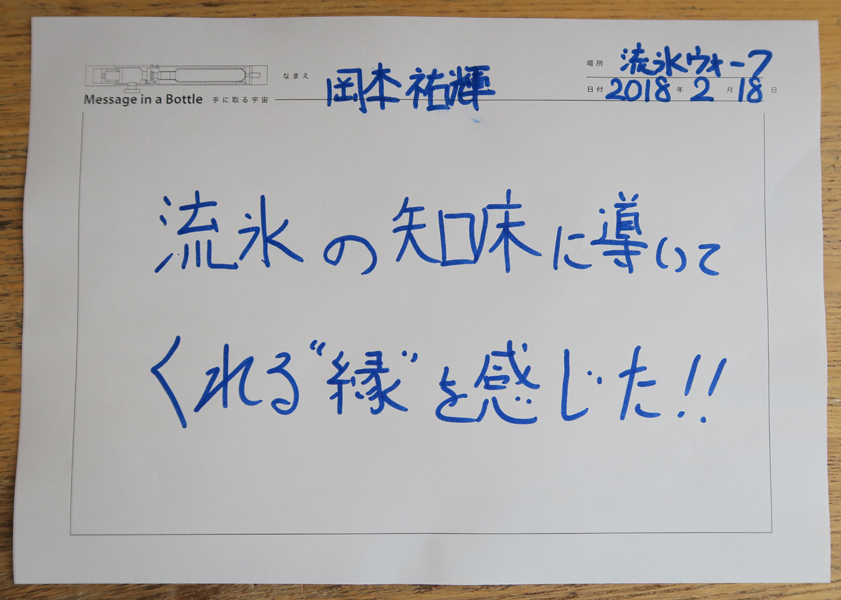 なまえ 岡本祐輝
場所 流氷ウォーク
Message in a Bottle 手に取る宇宙
日付 2018年2月18日
流氷の知床に導いて
くれる“縁”を感じた!!